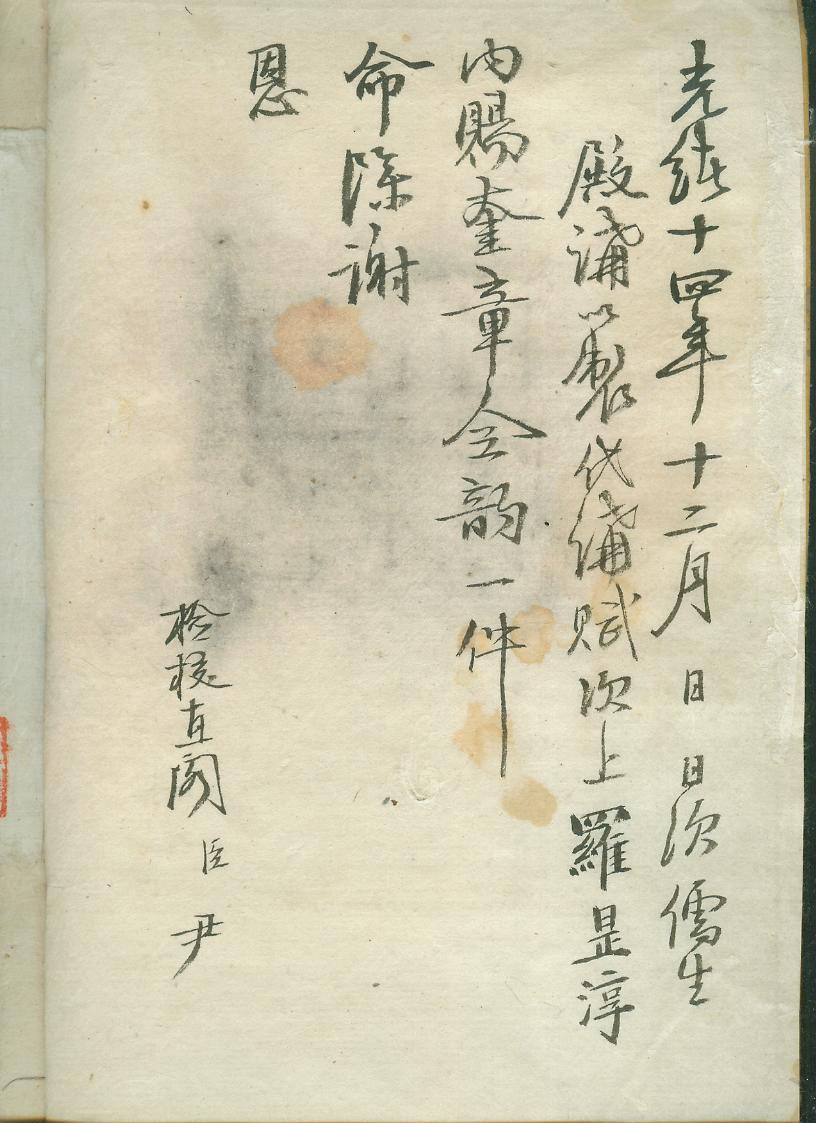 光緖十四年十二月 日 日次儒生
殿講以製代講賦次上羅是淳
內賜奎章全韻一件
命除謝
恩
檢校直閣 臣 尹